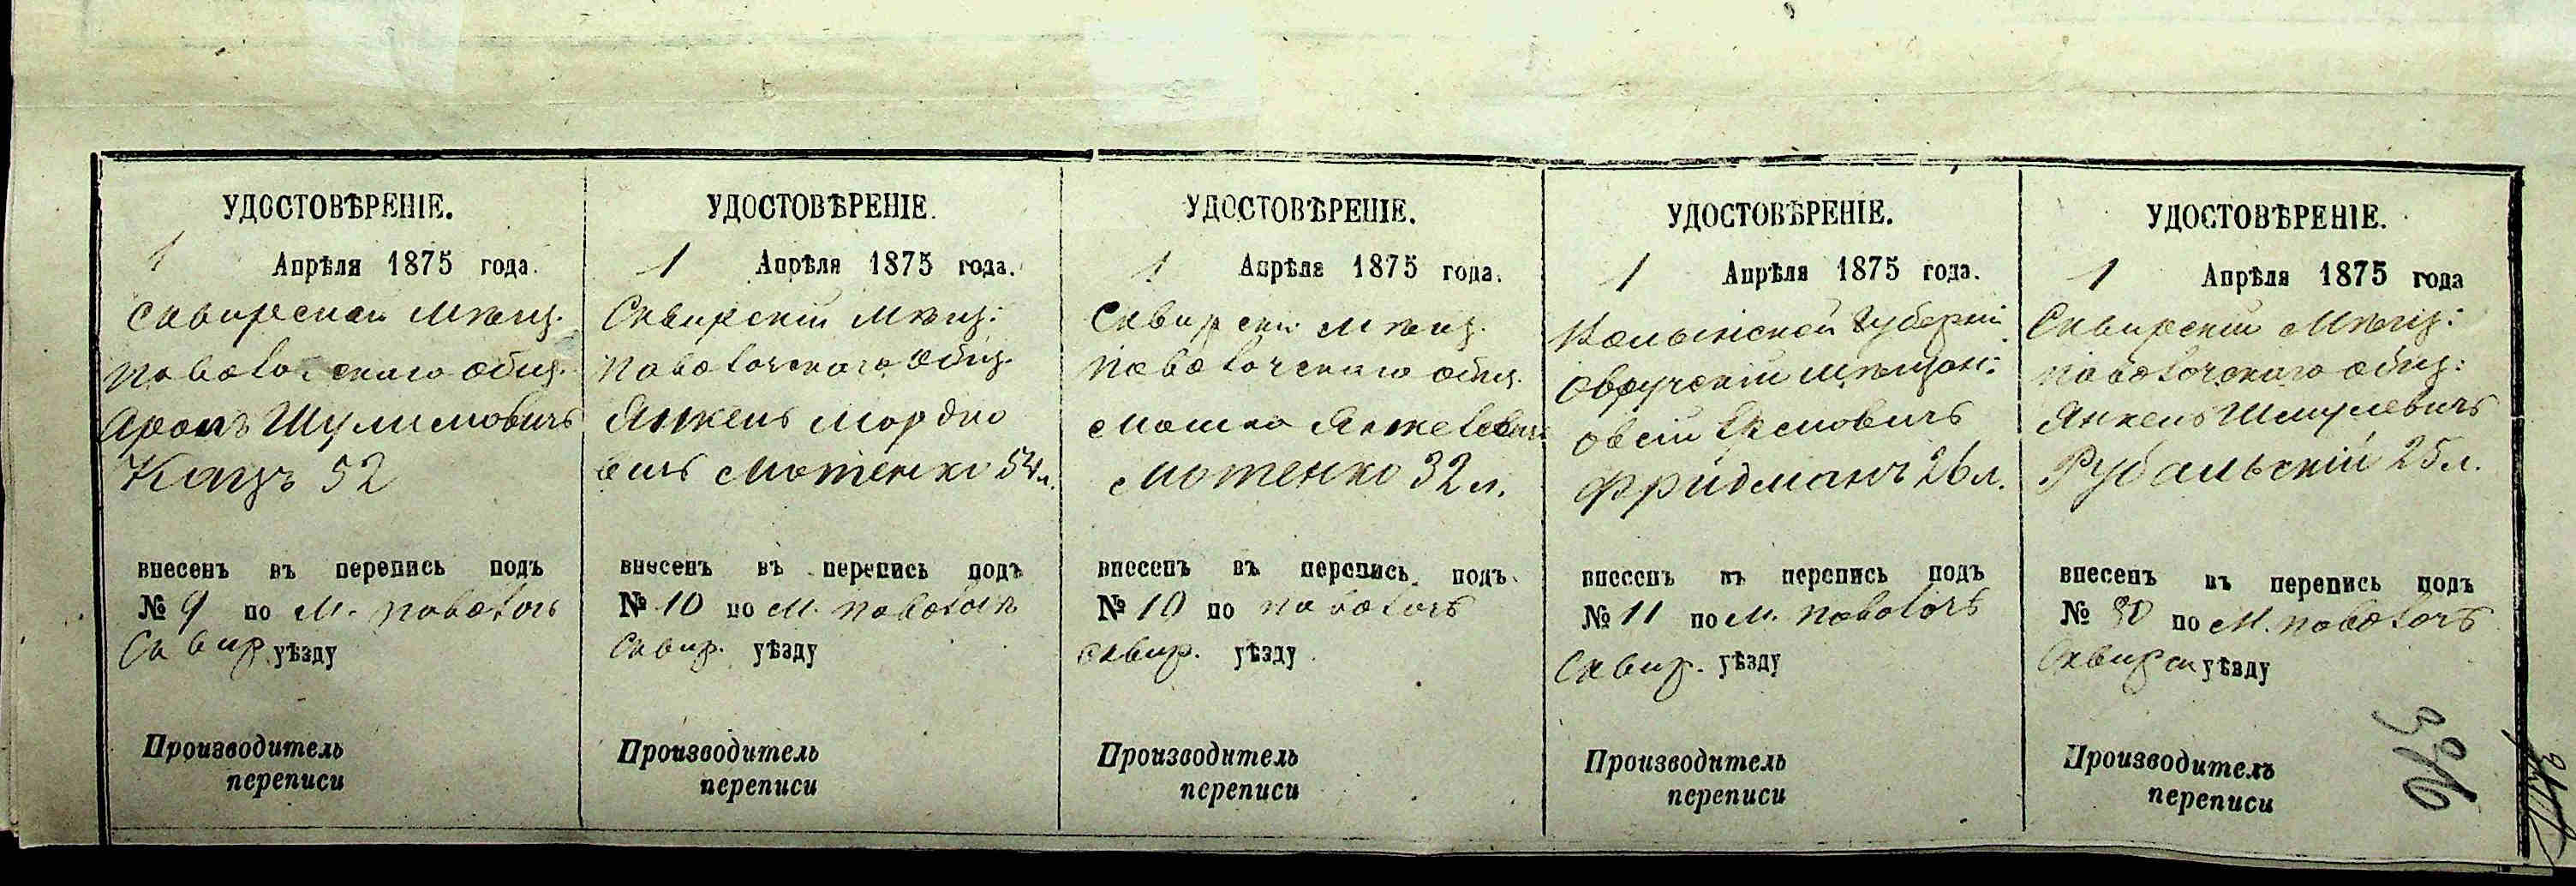 УДОСТОВѢРЕНІЕ.
1 Апрѣля 1875 года.
Сквирскій мѣщ.
Паволочскаго общ.
Аронъ Шулимовичъ
Кацъ 52
внесенъ въ перепись подъ
№ 9 по М. Паволочь
Сквир. уѣзду
Производитель
переписи
УДОСТОВѢРЕНІЕ.
1 Апрѣля 1875 года.
Сквирскій мѣщ:
Паволочскаго общ.
Янкель Мордко
вичъ Мотенко 54 л.
внесенъ въ перепись подъ
№ 10 по М. Паволочь
Сквир. уѣзду
Производитель
переписи
УДОСТОВѢРЕНІЕ.
1 Апрѣля 1875 года.
Сквирскій мѣщ.
Паволочскаго общ.
Мошко Янкелевичъ
Мотенко 32 л.
внесенъ въ перепись подъ
№ 10 по Паволочь
Сквир. уѣзду
Производитель
переписи
УДОСТОВѢРЕНІЕ.
1 Апрѣля 1875 года.
Волынской Губерніи
Овручскій мѣщан:
Овсій Ерсмовичъ
Фридманъ 26 л.
внесенъ въ перепись подъ
№ 11 по М. Паволочь
Сквир. уѣзду
Производитель
переписи
УДОСТОВѢРЕНІЕ.
1 Апрѣля 1875 года
Сквирскій мѣщ:
Паволочскаго общ:
Янкель Шмулевичъ
Рубальскій 25 л.
внесенъ въ перепись подъ
№ по М. Паволочь
Сквирск уѣзду
Производитель
переписи